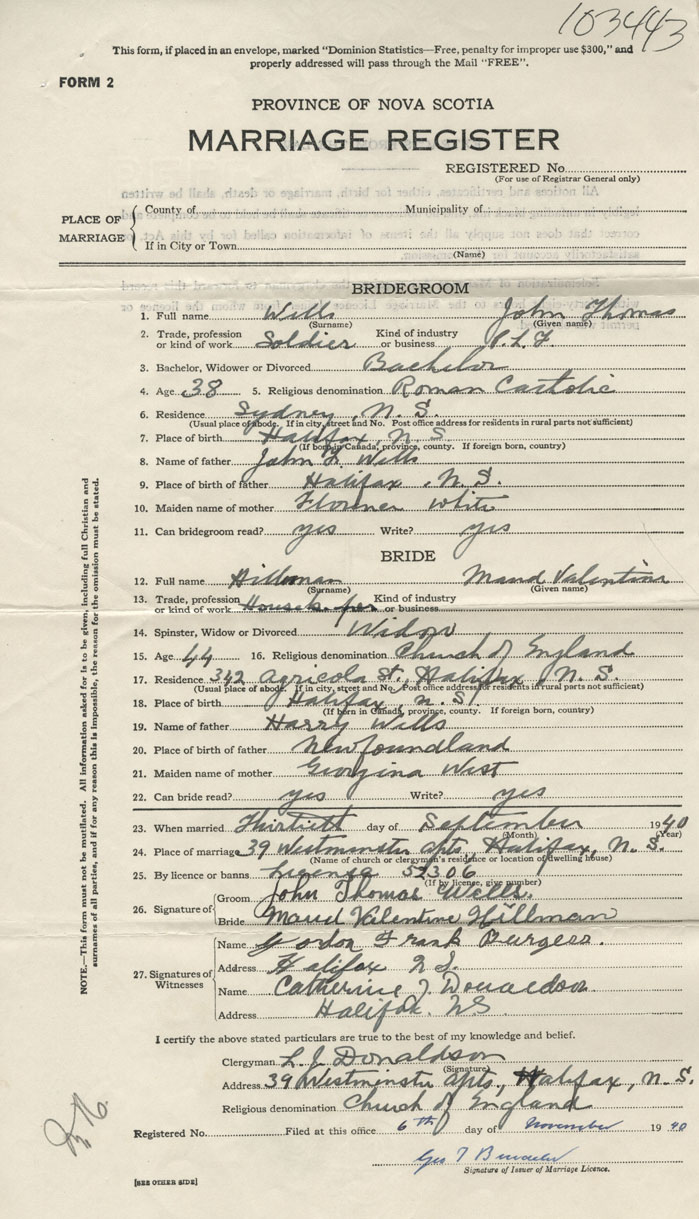 103443
This form, if placed in an envelope, marked "Dominion Statistics—Free, penalty for improper use $300," and
properly addressed will pass through the Mail "FREE".
FORM 2
PROVINCE OF NOVA SCOTIA
MARRIAGE REGISTER
REGISTERED No.
(For use of Registrar General only)
PLACE OF MARRIAGE
County of Municipality of
If in City or Town
(Name)
BRIDEGROOM
1. Full name Wills John Thomas
(Surname) (Given name)
2. Trade, profession or kind of work Soldier Kind of industry or business P.L.F.
3. Bachelor, Widower or Divorced Bachelor
4. Age 38 5. Religious denomination Roman Catholic
6. Residence Sydney, N. S.
(Usual place of abode. If in city, street and No. Post office address for residents in rural parts not sufficient)
7. Place of birth Halifax, N. S.
(If born in Canada, province, county. If foreign born, country)
8. Name of father John F. Wills
9. Place of father Halifax, N. S.
10. Maiden name of mother Florence White
11. Can bridegroom read? yes Write? yes
BRIDE
12. Full name Hillman Maud Valentine
(Surname) (Given name)
13. Trade, profession or kind of work Housekeeper Kind of industry or business
14. Spinster, Widow or Divorced Widow
15. Age 44 16. Religious denomination Church of England
17. Residence 342 Agricola St., Halifax, N. S.
(Usual place of abode. If in city, street and No. Post office address for residents in rural parts not sufficient)
18. Place of birth Halifax, N. S.
(If born in Canada, province, county. If foreign born, country)
19. Name of father Harry Wills
20. Place of birth of father Newfoundland
21. Maiden name of mother Georgina West
22. Can bride read? yes Write? yes
23. When married Thirtieth day of September 1940
(Month) (Year)
24. Place of marriage 39 Westminster Apts, Halifax, N. S.
(Name of church or clergymen's residence or location of dwelling house)
25. By licence or banns License 52306
(If by license, give number)
26. Signature of
Groom John Thomas Wells.
Bride Maud Valentine Hillman
27. Signatures of Witnesses
Name Gordon Frank Burgess.
Address Halifax N.S.
Name Catherine J. Donaldson
Address Halifax. NS
I certify the above stated particulars are true to the best of my knowledge and belief.
Clergyman L. J. Donaldson
(Signature)
Address 39 Westminster Apts, Halifax, N. S.
Religious denomination Church of England
Registered No. Filed at this office 6th day of November 1940
Geo T
Signature of Issuer of Marriage Licence.
[SEE OTHER SIDE]
NOTE.—This form must not be mutilated. All information asked for is to be given, including full Christian and
surnames of all parties, and if for any reason this is impossible, the reason for the omission must be stated.